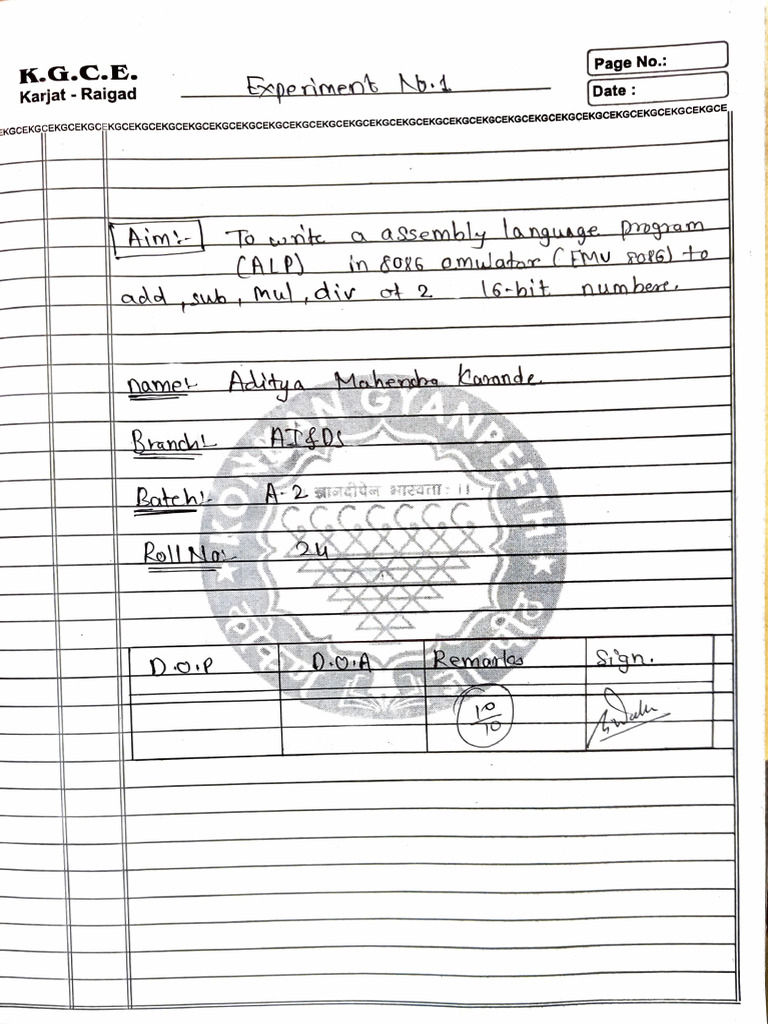 K.G.C.E.
Karjat - Raigad
Experiment No.1
Page No.:
Date :
EKGCEKGCEKGCEKGCEKGCEKGCEKGCEKGCEKGCEKGCEKGCEKGCEKGCEKGCEKGCEKGCEKGCEKGCEKGCEKGCEKGCE
Aim:- To write a assembly language program
(ALP) in 8086 omulator (EMU 8086) to
add, sub, mul, div of 2 16-bit numbers.
name:- Aditya Mahendra Karande.
KONKAN GYANPEETH
Branch:- AI&DS
Batch:- A-2
ज्ञानदीपेन भास्वता: ।।
Roll No:- 24
D.O.P D.O.A Remarks Sign.
10
10